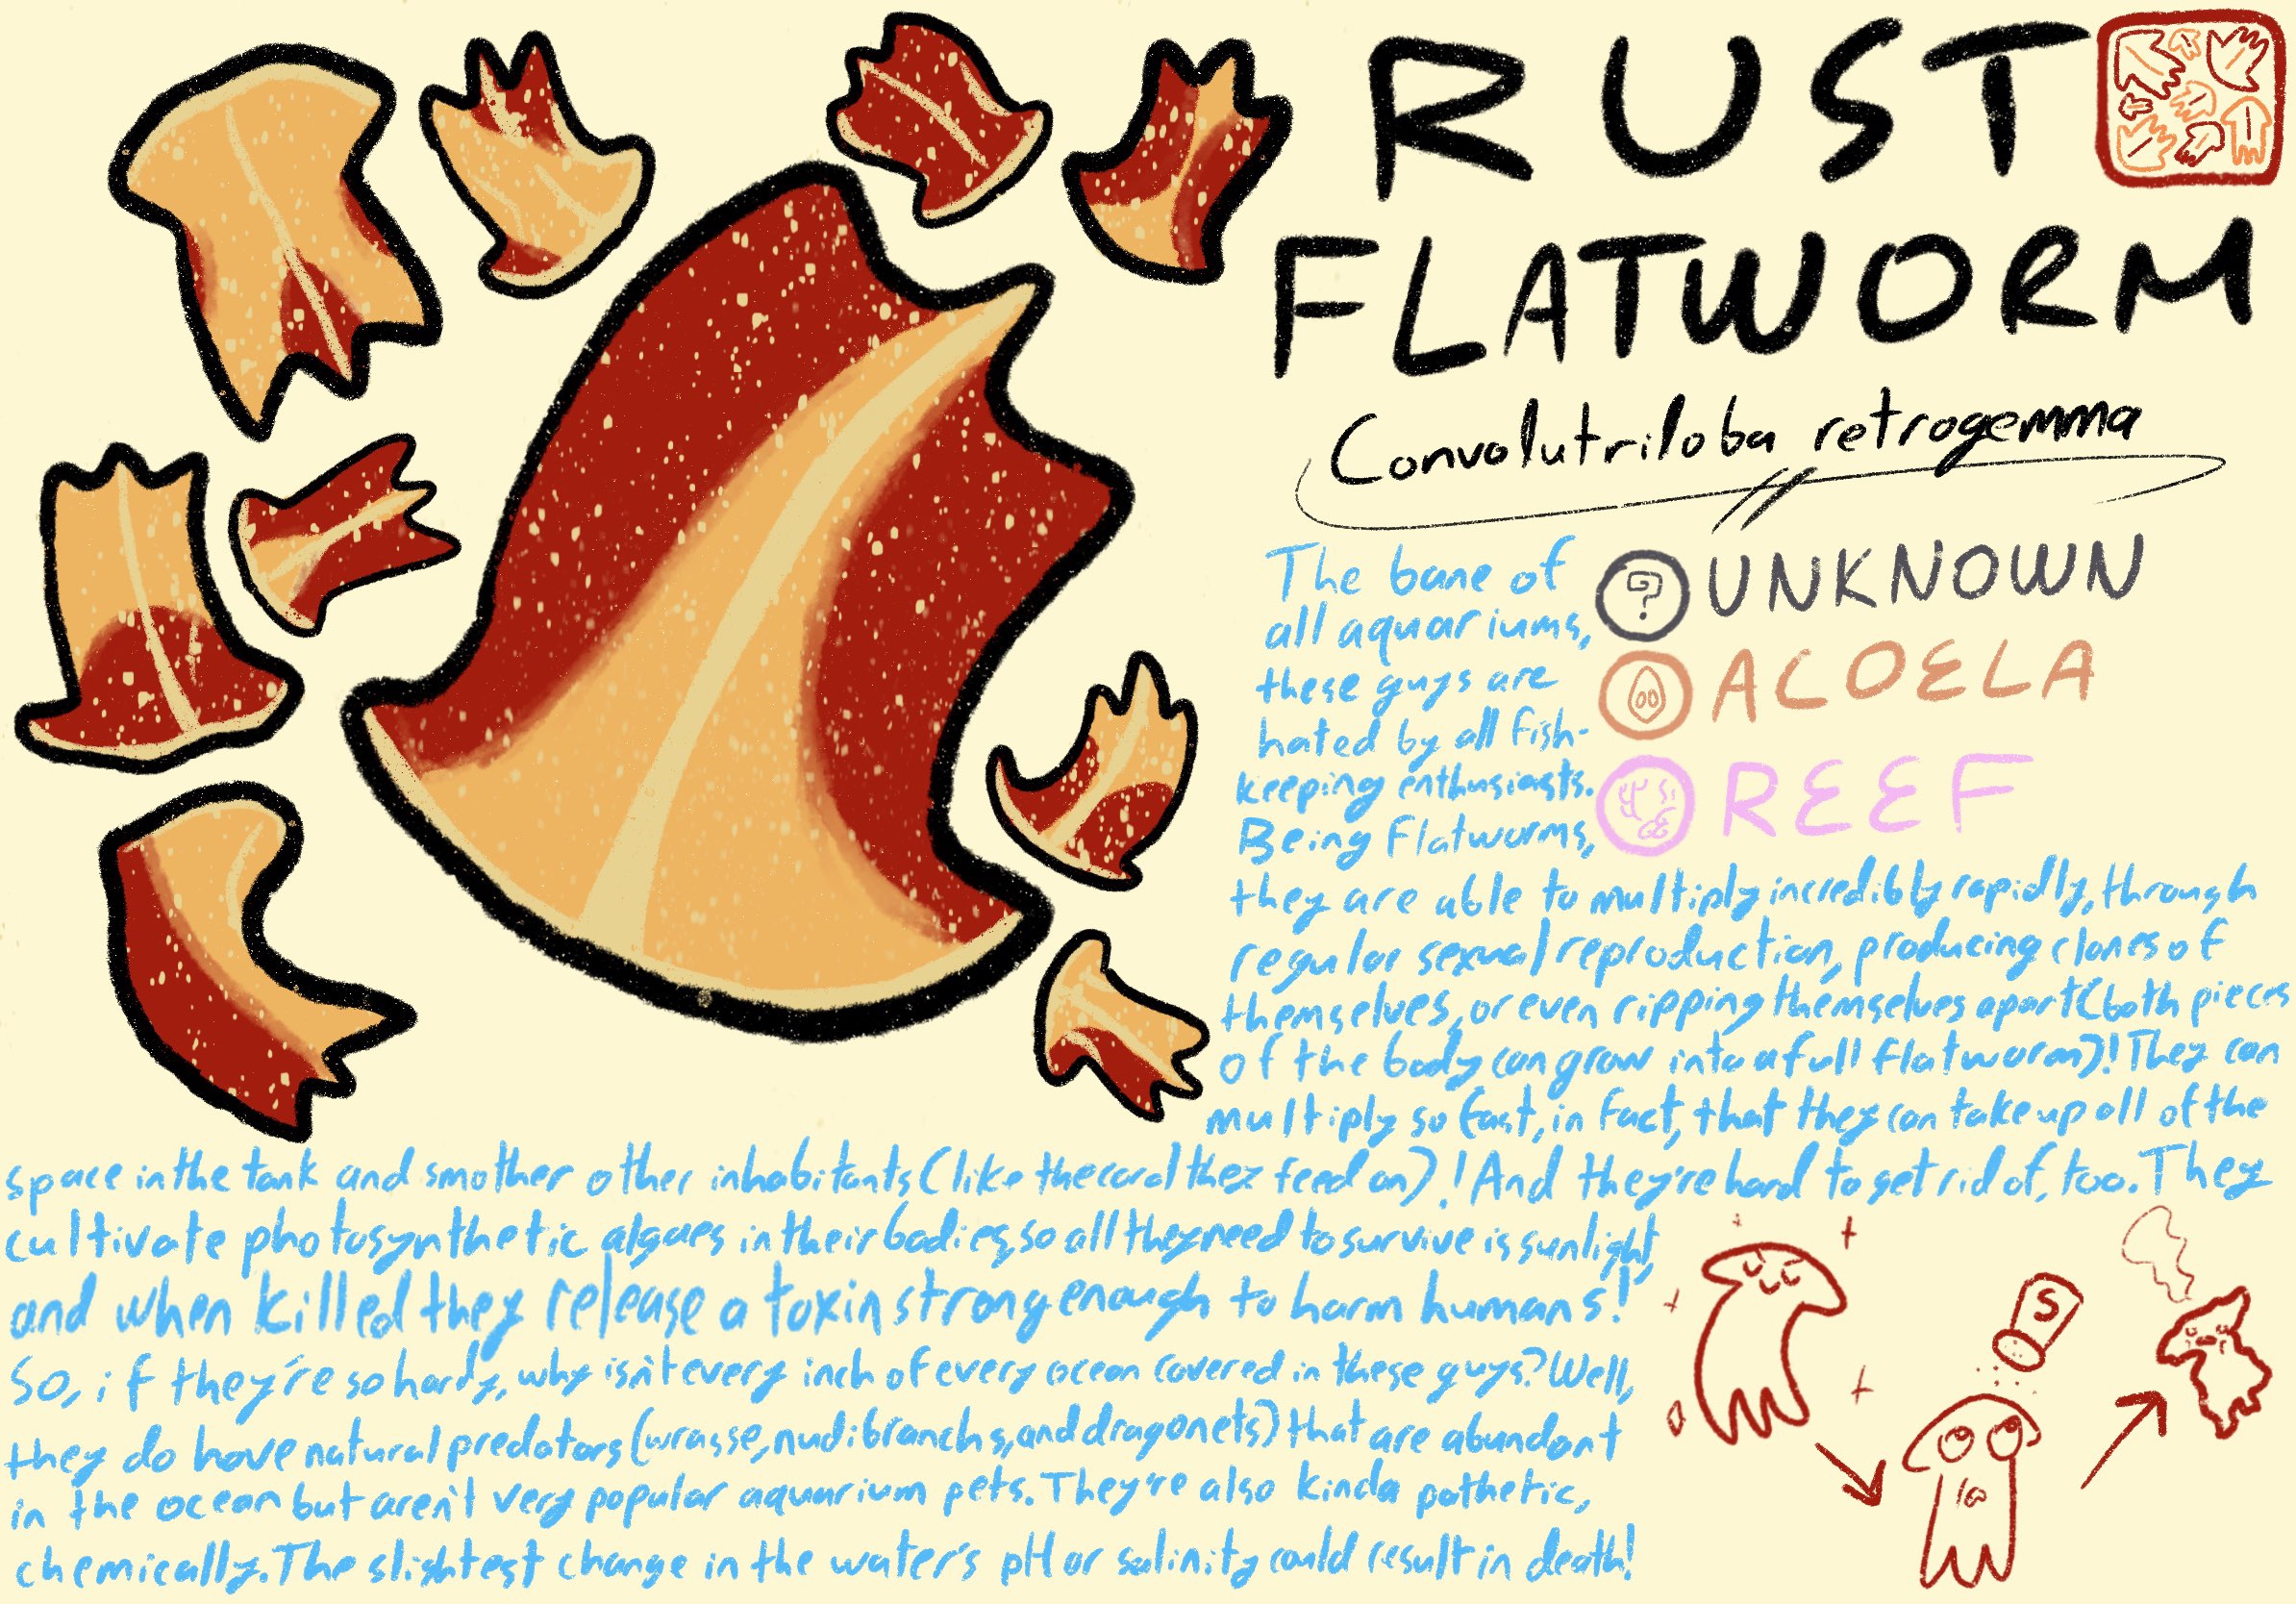 RUST
FLATWORM
Convolutriloba retrogemma
UNKNOWN
ACOELA
REEF
The bane of
all aquariums,
these guys are
hated by all fish-
keeping enthusiasts.
Being flatworms,
they are able to multiply incredibly rapidly, through
regular sexual reproduction, producing clones of
themselves, or even ripping themselves apart (both pieces
of the body can grow into a full flatworm)! They can
multiply so fast, in fact, that they can take up all of the
space in the tank and smother other inhabitants (like the coral they feed on)! And they're hard to get rid of, too. They
cultivate photosynthetic algaes in their bodies, so all they need to survive is sunlight,
and when killed they release a toxin strong enough to harm humans!
So, if they're so hardy, why isn't every inch of every ocean covered in these guys? Well,
they do have natural predators (wrasse, nudibranchs, and dragonets) that are abundant
in the ocean but aren't very popular aquarium pets. They're also kinda pathetic,
chemically. The slightest change in the water's pH or salinity could result in death!
S